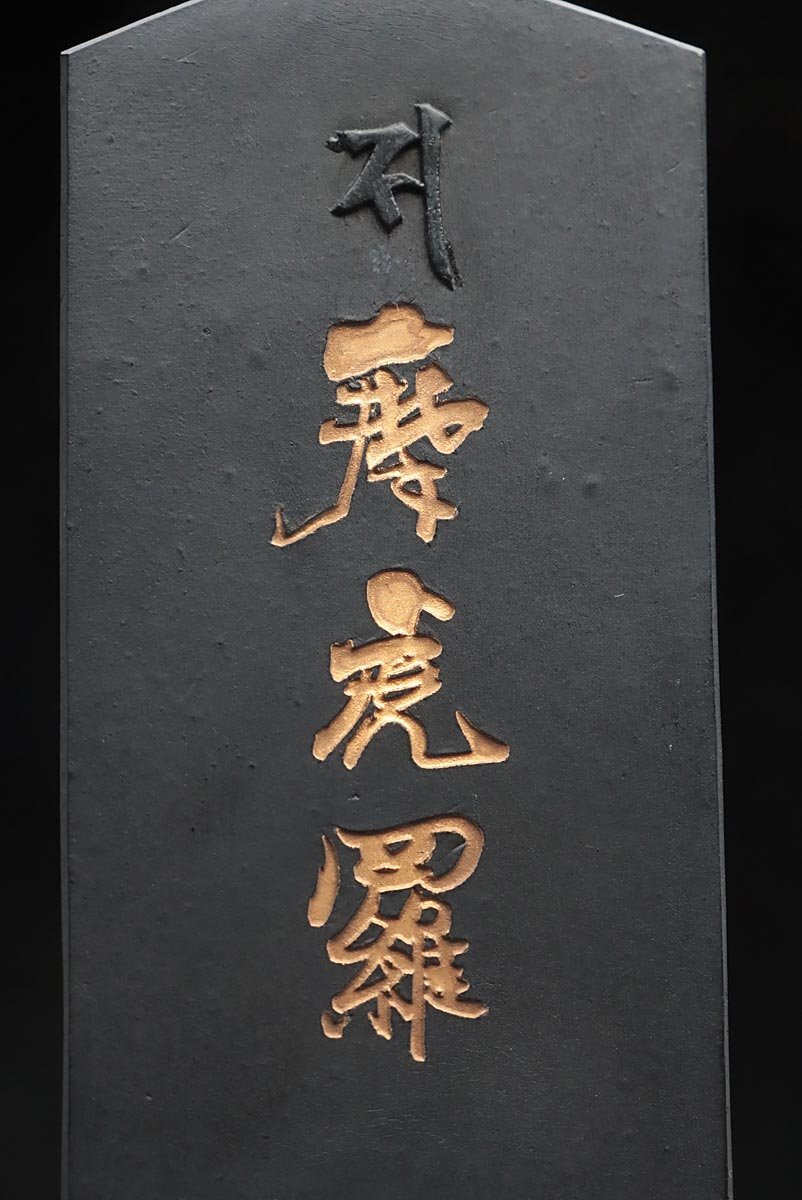 摩虎羅